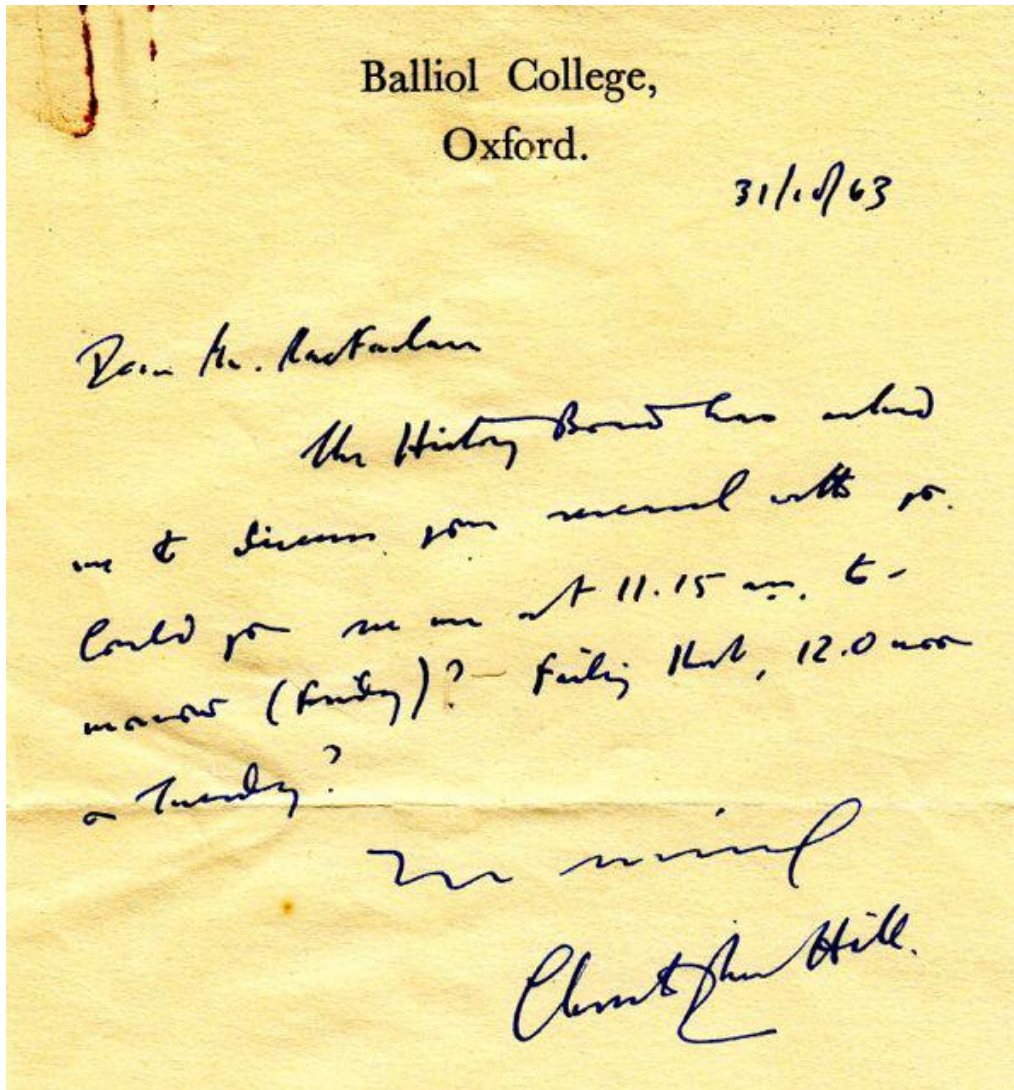 Balliol College,
Oxford.
31/10/63
Dear Mr. Macfarlane
The History Board has asked
me to discuss your research with you.
Could you see me at 11.15 am. to-
morrow (Friday)? - Failing that, 12.0 noon
on Tuesday?
Yours sincerely
Christopher Hill.